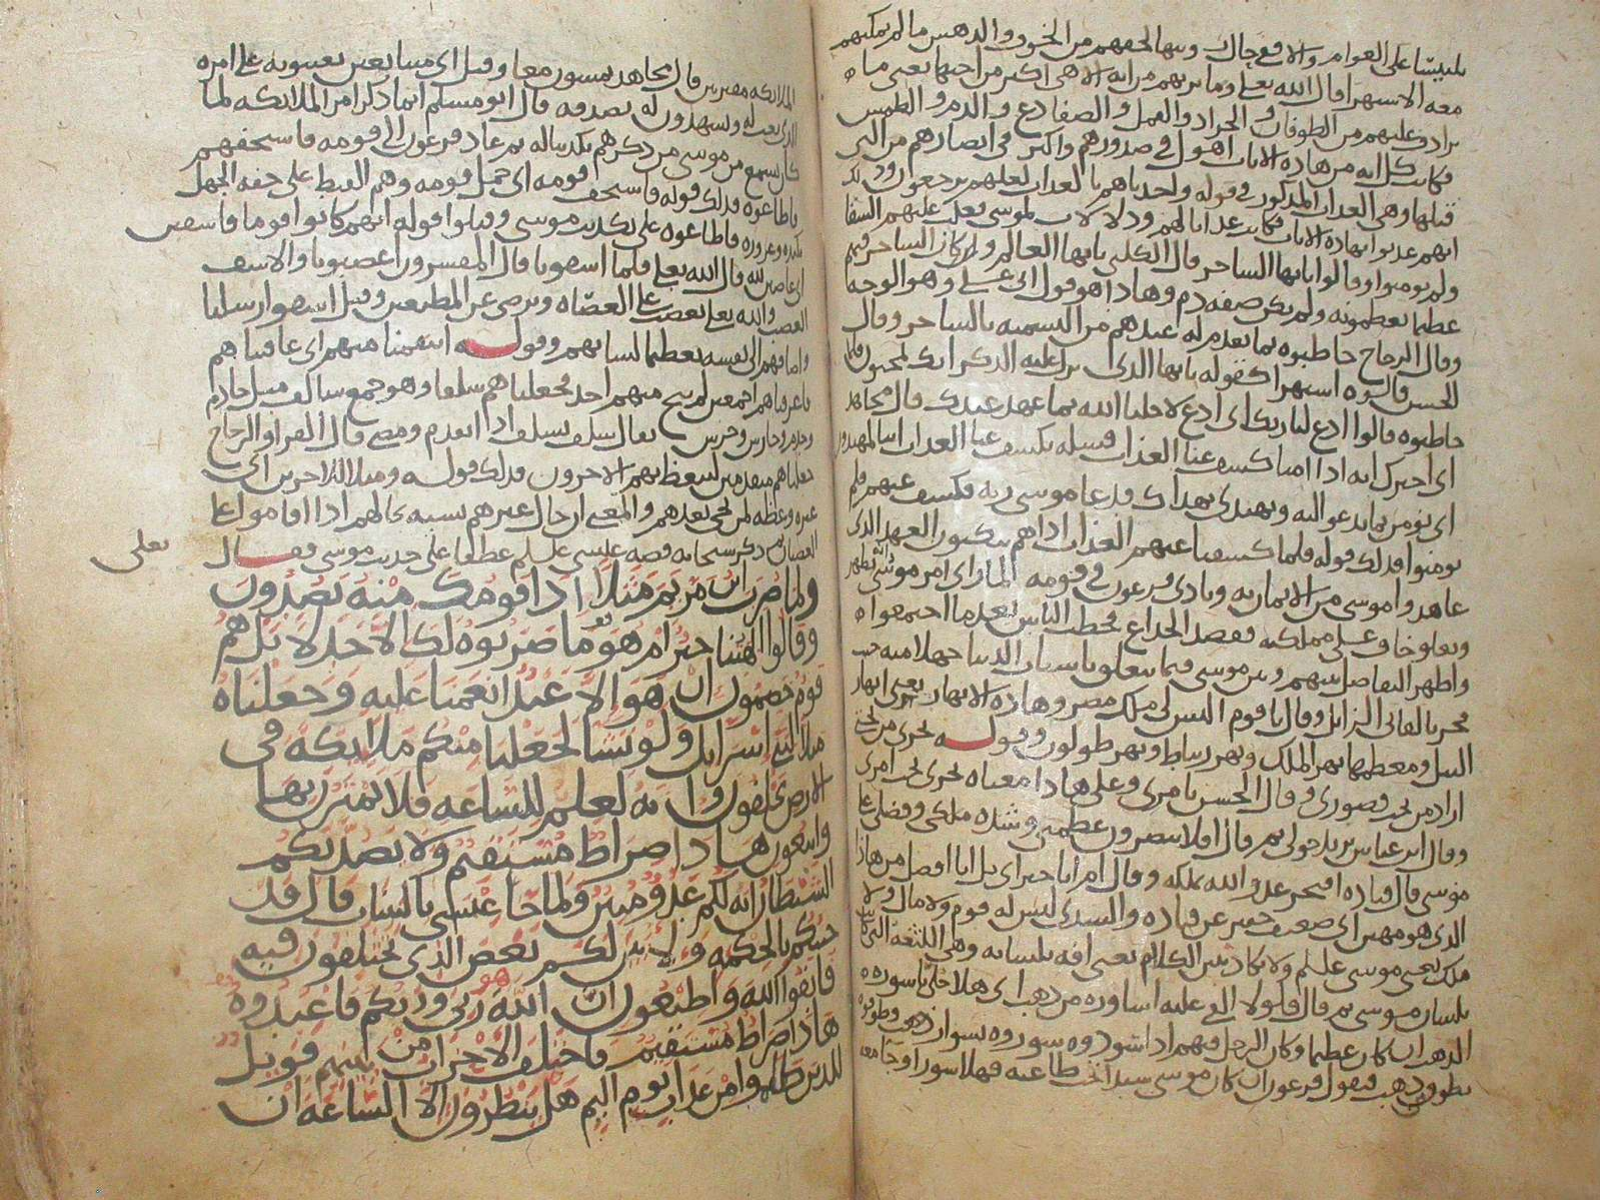 تلبيسا على العوام والا فع حاك وبها لحقهم من الخوف والدهس ما لم يمكنهم
معه الاستهزا قال الله تعلى وما نريهم من ايه الا هي اكبر من اختها يعني ما
ترادف عليهم من الطوفان و الجراد والقمل والصفادع والدم و الطمس
فكانت كل ايه من هاده الايات اهول في صدورهم واكبر في ابصارهم من التي
قبلها وهي العداب المدكور في قوله واخدناهم بالعداب لعلهم يرجعون ودلك
انهم عدبوا بهاده الايات فكانت عدابا لهم ودلالات لموسى فغلب عليهم الشقا
ولم يومنوا وقالوا يايها الساحر قال الكلبي يايها العالم وكان الساحر فيهم
عظيما يعظمونه ولم يكن صفه دم وهادا هو قول ابي علي وهو الوجه
وقال الزجاج خاطبوه بما تقدم له عندهم من التسميه بالساحر وقال
الحسن قالوه استهزا كقوله يايها الدي نزل عليه الدكر انك لمجنون فلما
خاطبوه قالوا ادع لنا ربك اي ادع لاجلنا الله بما عهد عندك قال مجاهد
اي اخبرك انه ادا امنا كشف عنا العداب فسله يكشف عنا العداب اننا لمهتدون
اي نومن بما تدعو اليه ونهتدي بهداك فدعا موسى ربه فكشف عنهم فلم
يومنوا فدلك قوله فلما كشفنا عنهم العداب ادا هم ينكثون العهد الدي
عاهدوا موسى من الايمان به ونادى فرعون في قومه لما راى امر موسى يظهر
ويعلو خاف على مملكته فقصد الخداع فخطب الناس بعد ما اجتمعوا
واظهر التفاضل بينهم وبين موسى فيما يتعلق باسباب الدنيا جهلا منه
فجر بالفاني الزايل وقال يا قوم اليس لي ملك مصر وهاده الانهار يعني انهار
النيل ومعظمها نهر الملك ونهر دمياط ونهر طولون وقوله تجري من تحتي
اراد من تحت قصوري وقال الحسن بامري وعلى هادا معناه تجري تحت امري
وقال ابن عباس تجري حولي ثم قال افلا تبصرون عظمتي وشده ملكي وفضلي على
موسى قال قتاده افتخر عدو الله بملكه وقال ام انا خير اي بل انا افضل من هادا
الدي هو مهين اي ضعيف حقير عن قتاده والسدي ليس له قوم ولا مال ولا
ملك يعني موسى عليلم ولا يكاد يبين الكلام يعني افه بلسانه وهي اللثغه التي
بلسان موسى ثم قال فلولا القي عليه اساوره من دهب اي هلا حلي باسوره
الدهب ان كان عظيما وكان الرجل فيهم ادا سود وه سوروه بسوار دهب وطوقوه
بطوق دهب فيقول فرعون ان كان موسى سيدا تجب طاعته فهلا سور او جا معه
الملايكه مقترنين قال مجاهد يمشون معا وقيل اي متتابعين يعينونه على امره
الدي بعث له ويشهدون له بصدقه قال ابو مسلم انما دكر امر الملايكه لما
كان يسمع من موسى من دكرهم بكد ساله ثم عاد فرعون الى قومه فاستخفهم
فاطاعوه فدلك قوله فاستخف قومه اي حمل قومه وهم القبط على خفه الجهل
بكيده وغروره فاطاعوه على تكديب موسى وقبلوا قوله انهم كانوا قوما فاسقين
اي عاصين لله قال الله تعلى فلما اسفونا قال المفسرون اغضبونا والاسف
الغضب والله تعلى يغضب على العصاه ويرضى عن المطيعين وقيل اسفوا رسلنا
واضافهم الى نفسه تعظيما لشانهم وقوله انتقمنا منهم اي عاقبناهم
فاغرقناهم اجمعين لم ينج منهم احد فجعلناهم سلفا وهو جمع سالف مثل خادم
وخدم وحارس وحرس يقال سلف يسلف ادا تقدم ومضى قال الفرا والزجاج
جعلناهم متقدمين ليتعظ بهم الاخرون فدلك قوله ومثلا للاخرين اي
عبره وعظه لمن يجي بعدهم والمعنى ان حال غيرهم يشبه حالهم ادا اقاموا على
العصيان ثم دكر سبحانه قصه عيسى عليلم عطفا على حديث موسى فقـــال
تعلى
ولما ضرب ابن مريم مثلا ادا قومك منه يصدون
وقالوا الهتنا خير ام هو ما ضربوه لك الا جدلا بل هم
قوم خصمون ان هو الا عبد انعمنا عليه وجعلناه
مثلا لبني اسرايل ولو نشا لجعلنا منكم ملايكه في
الارض يخلفون وانه لعلم للساعه فلا تمترن بها
واتبعون هادا صراط مستقيم ولا يصدنكم
الشيطان انه لكم عدو مبين ولما جا عيسى بالبينات قال قد
جيتكم بالحكمه ولابين لكم بعض الدي تختلفون فيه
فاتقوا الله واطيعون ان الله هو ربي وربكم فاعبدوه
هادا صراط مستقيم فاختلف الاحزاب من بينهم فويل
للدين ظلموا من عداب يوم اليم هل ينظرون الا الساعه ان